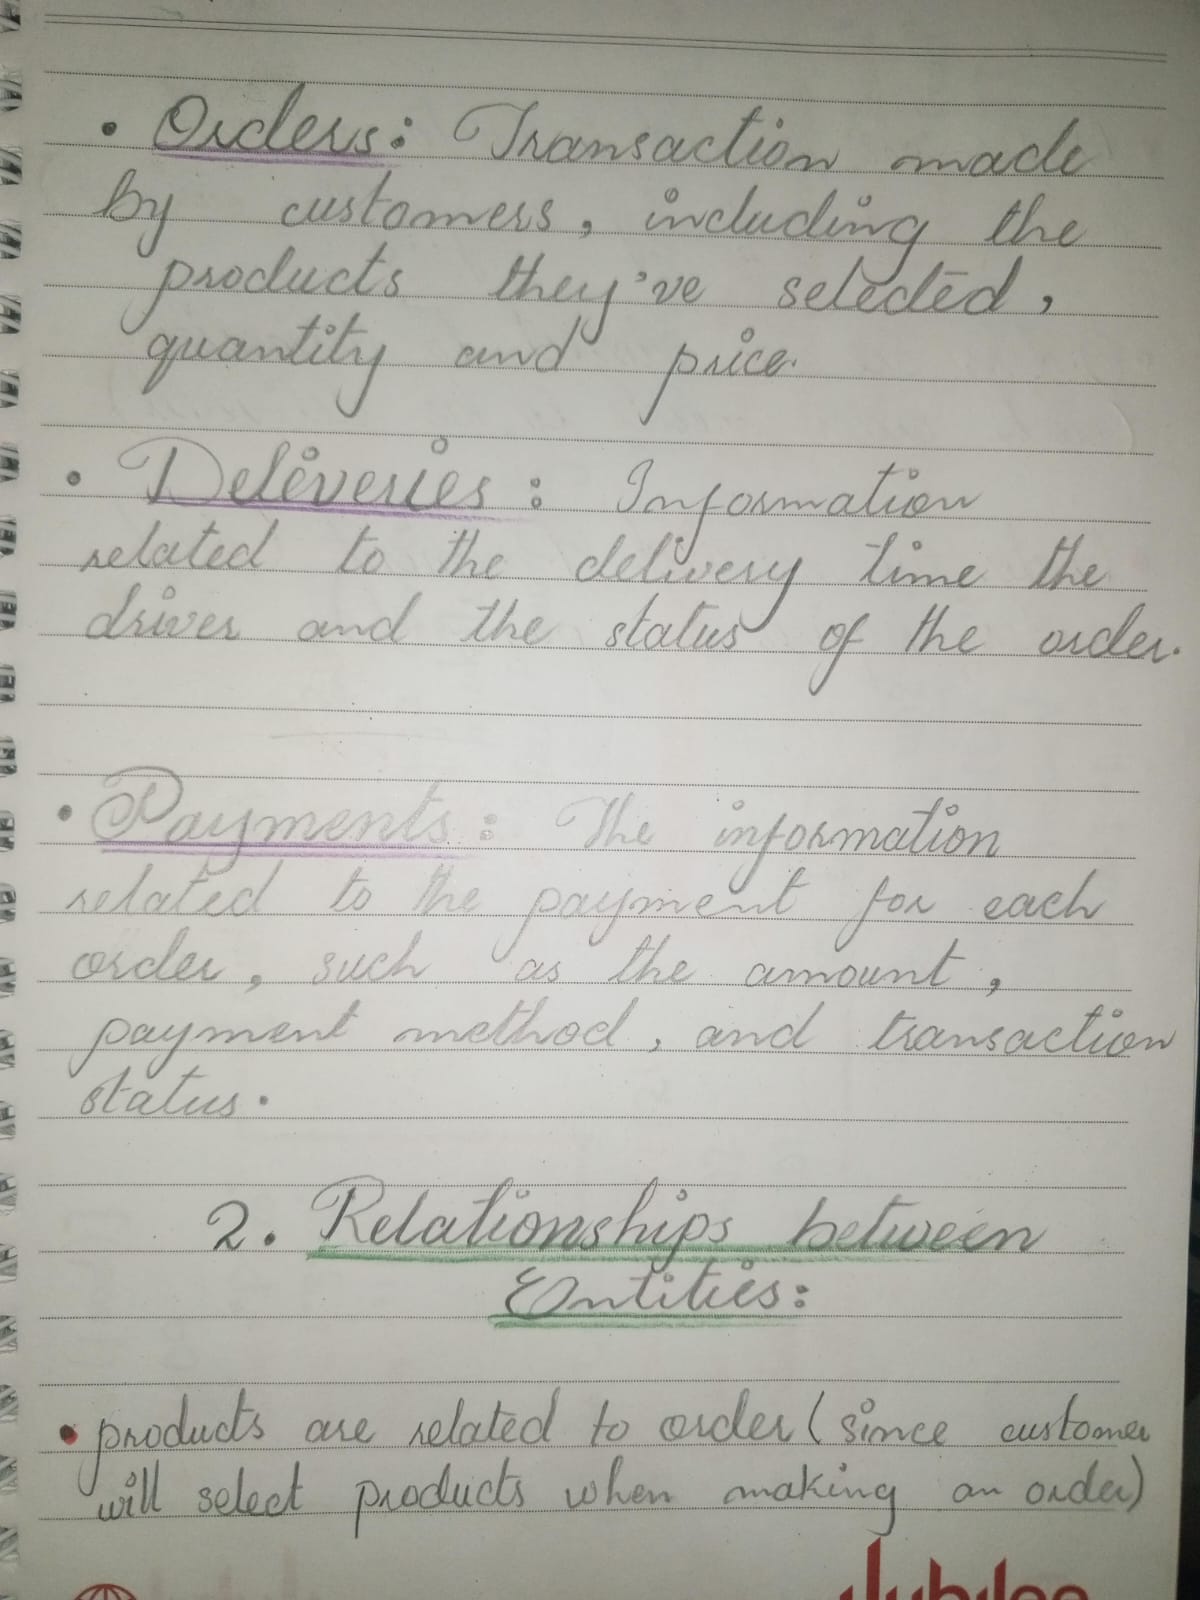 • Orders: Transaction made
by customers, including the
products they've selected,
quantity and price.
• Deliveries: Information
related to the delivery time the
driver and the status of the order.
• Payments: The information
related to the payment for each
order, such as the amount,
payment method, and transaction
status.
2. Relationships between
Entities:
• products are related to order (since customer
will select products when making an order)
Jubilee